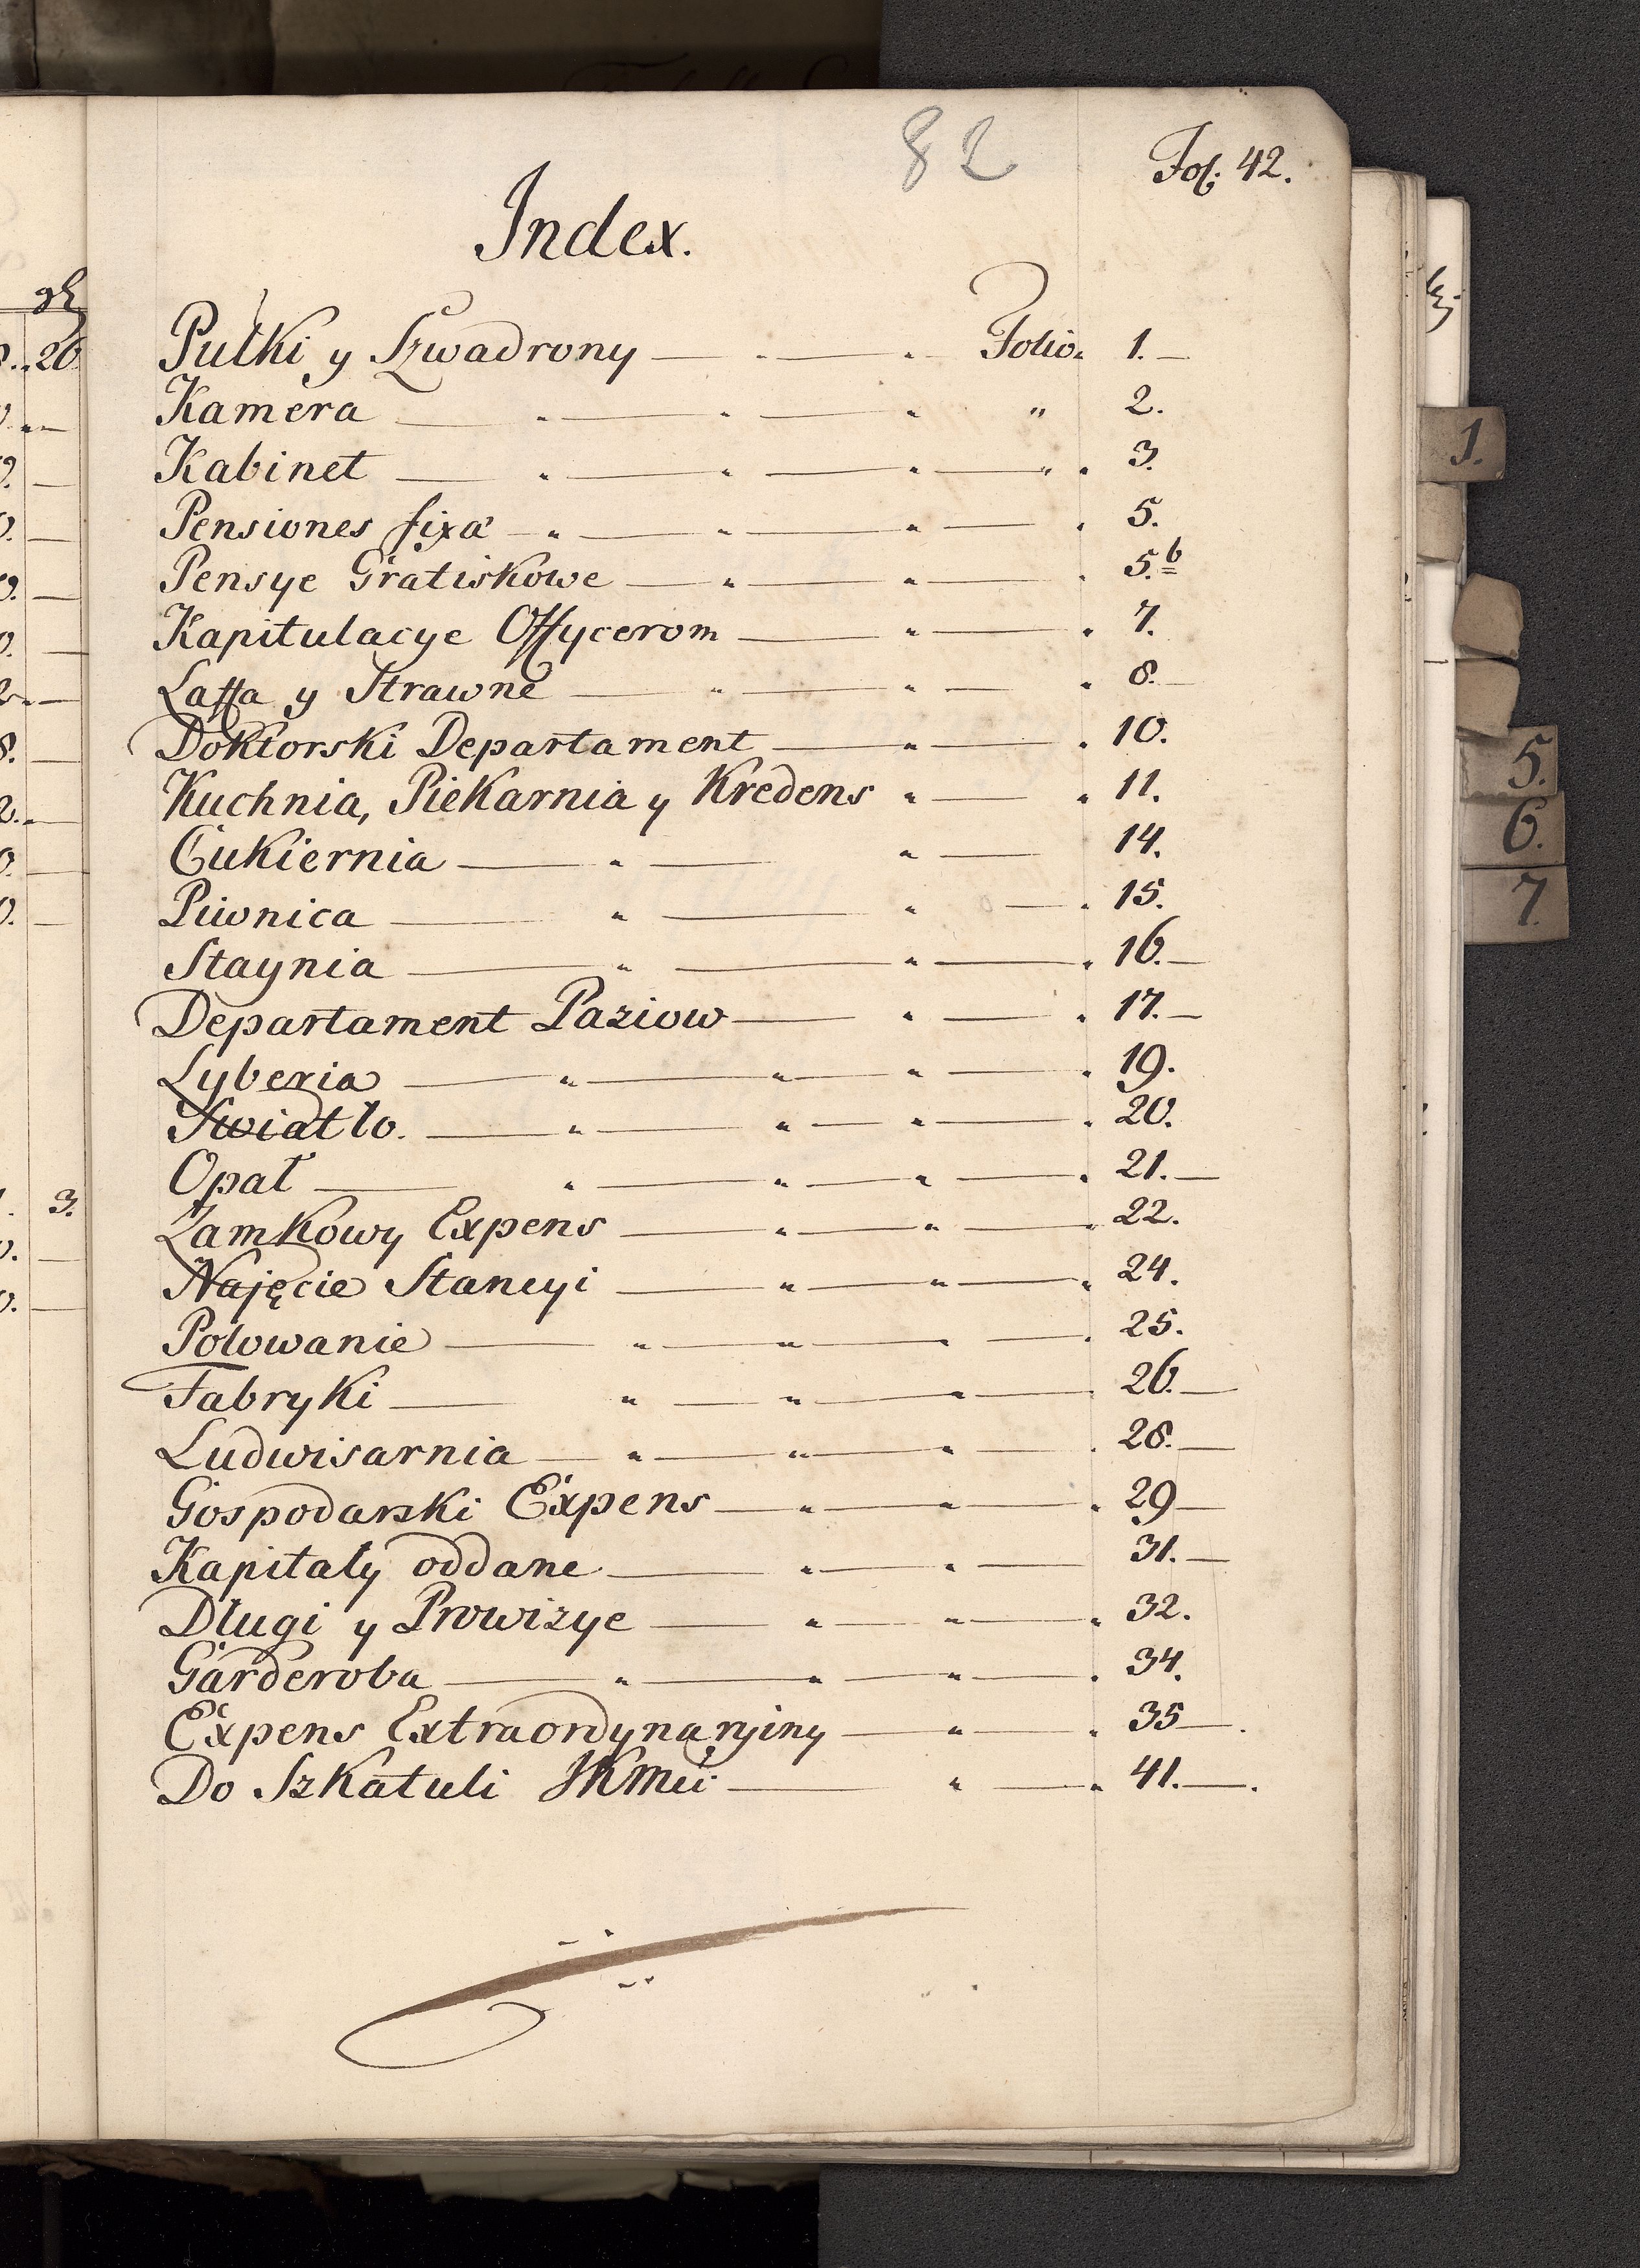 82
Fol: 42.
Index.
Pułki y Szwadrony — " — " Folio. 1. —
Kamera — " — " — " " 2.
Kabinet — " — " — " — " . 3.
Pensiones fixa — " — " — " — . 5.
Pensye Gratiskowe — " — " — . 5.b
Kapitulacye Offycerom — " — . 7.
Laffa y Strawne — " — " — . 8. —
Doktorski Departament — " — . 10.
Kuchnia, Piekarnia y Kredens " — . 11.
Cukiernia — " — " — 14.
Piwnica — " — " — . 15.
Staynia — " — " — . 16. —
Departament Paziow — " — . 17. —
Lyberia — " — " — " — . 19.
Swiatlo. — " — " — " — . 20.
Opał — " — " — " — . 21. —
Zamkowy Expens — " — " — . 22.
Najęcie Stancyi — " — " — " 24.
Polowanie — " — " — " — . 25.
Fabryki — " — " — " — . 26. —
Ludwisarnia — " — " — " — . 28. —
Gospodarski Expens — " — " — . 29 —
Kapitały oddane — " — " — 31. —
Długi y Prowizye — " — " — . 32.
Garderoba — " — " — " — . 34.
Expens Extraordynaryiny — " — . 35 — .
Do Szkatuli JKMci — " — " 41. — .
20
3.
1.
5.
6.
7.